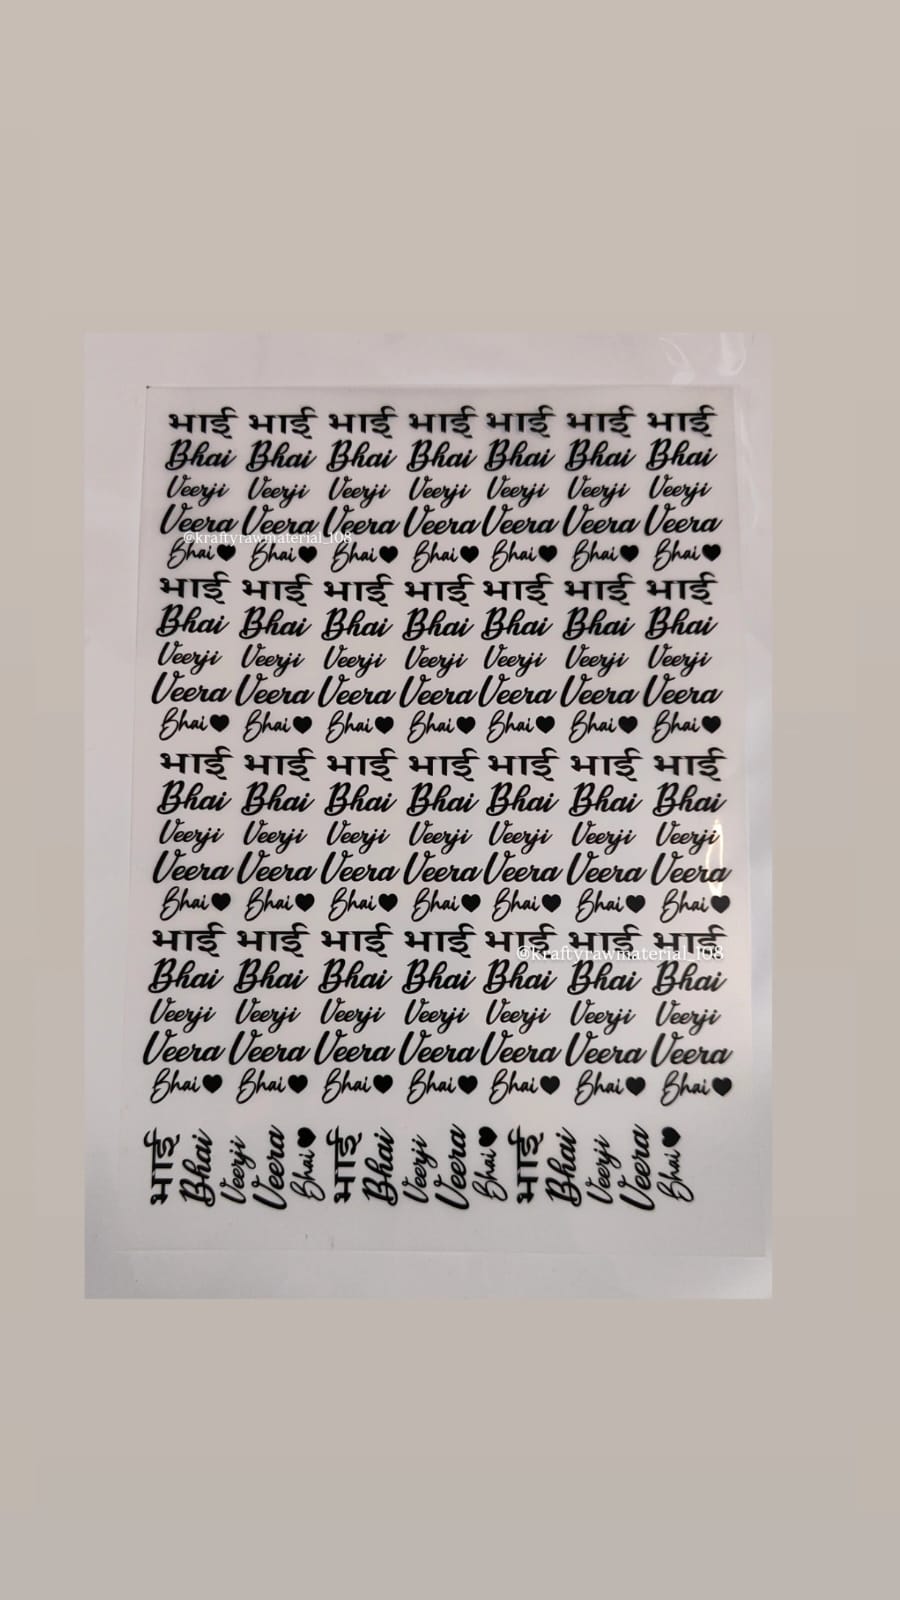 भाई भाई भाई भाई भाई भाई भाई
Bhai Bhai Bhai Bhai Bhai Bhai Bhai
Veerji Veerji Veerji Veerji Veerji Veerji Veerji
Veera Veera Veera Veera Veera Veera Veera
@kraftyrawmaterial_108
Bhai Bhai Bhai Bhai Bhai Bhai Bhai
भाई भाई भाई भाई भाई भाई भाई
Bhai Bhai Bhai Bhai Bhai Bhai Bhai
Veerji Veerji Veerji Veerji Veerji Veerji Veerji
Veera Veera Veera Veera Veera Veera Veera
Bhai Bhai Bhai Bhai Bhai Bhai Bhai
भाई भाई भाई भाई भाई भाई भाई
Bhai Bhai Bhai Bhai Bhai Bhai Bhai
Veerji Veerji Veerji Veerji Veerji Veerji Veerji
Veera Veera Veera Veera Veera Veera Veera
Bhai Bhai Bhai Bhai Bhai Bhai Bhai
भाई भाई भाई भाई भाई भाई भाई
@kraftyrawmaterial_108
Bhai Bhai Bhai Bhai Bhai Bhai Bhai
Veerji Veerji Veerji Veerji Veerji Veerji Veerji
Veera Veera Veera Veera Veera Veera Veera
Bhai Bhai Bhai Bhai Bhai Bhai Bhai
भाई
Bhai
Veerji
Veera
Bhai
भाई
Bhai
Veerji
Veera
Bhai
भाई
Bhai
Veerji
Veera
Bhai